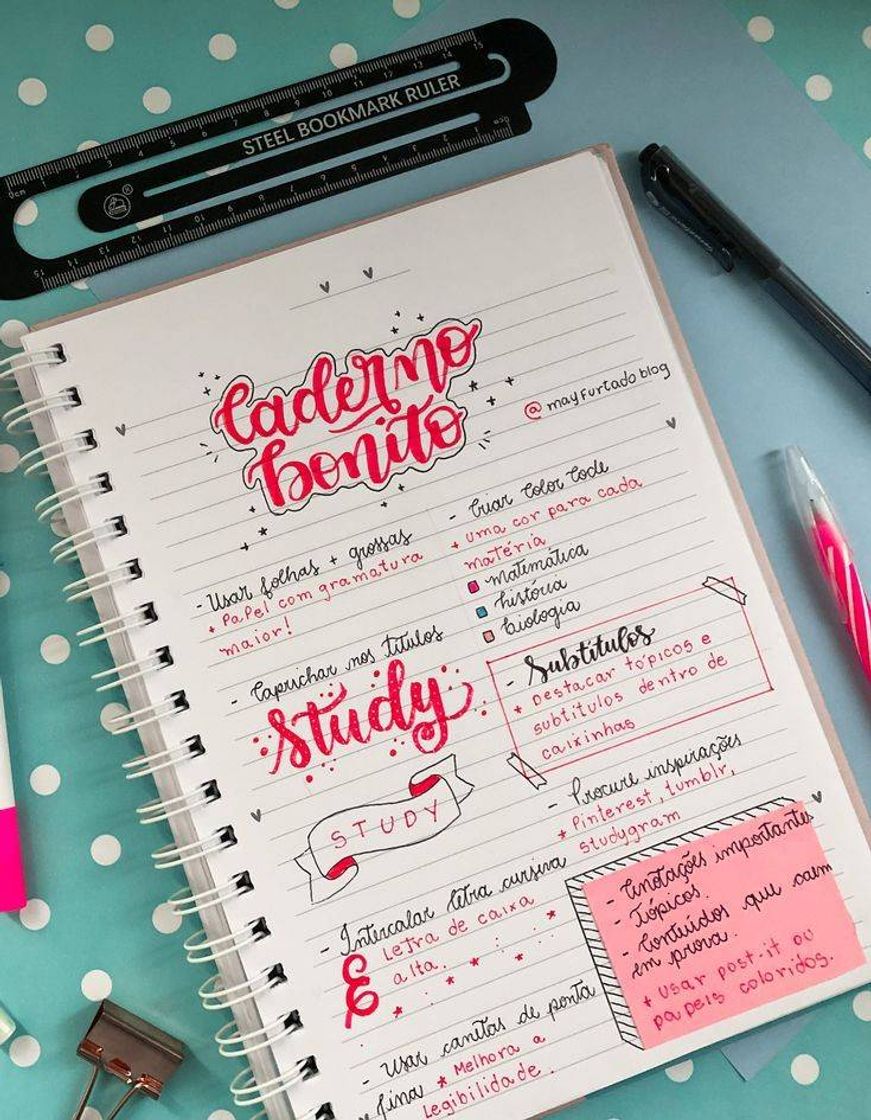 STEEL BOOKMARK RULER
Caderno
bonito
@mayfurtado blog
- Usar folhas + grossas
+ Papel com gramatura
maior!
- Criar Color Code
+ uma cor para cada
matéria
matemática
história
biologia
- Caprichar nos títulos
Study
STUDY
- Subtítulos
+ Destacar tópicos e
subtítulos dentro de
caixinhas
- Procure inspirações
* Pinterest, tumblr,
studygram
- Intercalar letra cursiva
E Letra de caixa
alta.
- Anotações importantes
- Tópicos.
- Conteúdos que caem
em prova.
+ Usar post-it ou
papeis coloridos.
- Usar canitas de ponta
fina * Melhora a
Legibilidade.